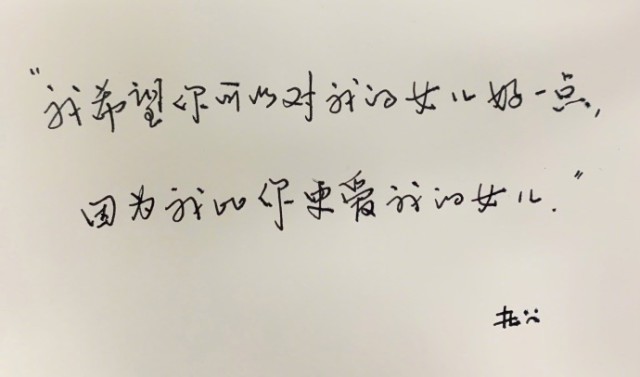 “我希望你可以对我的女儿好一点,
因为我比你更爱我的女儿.”